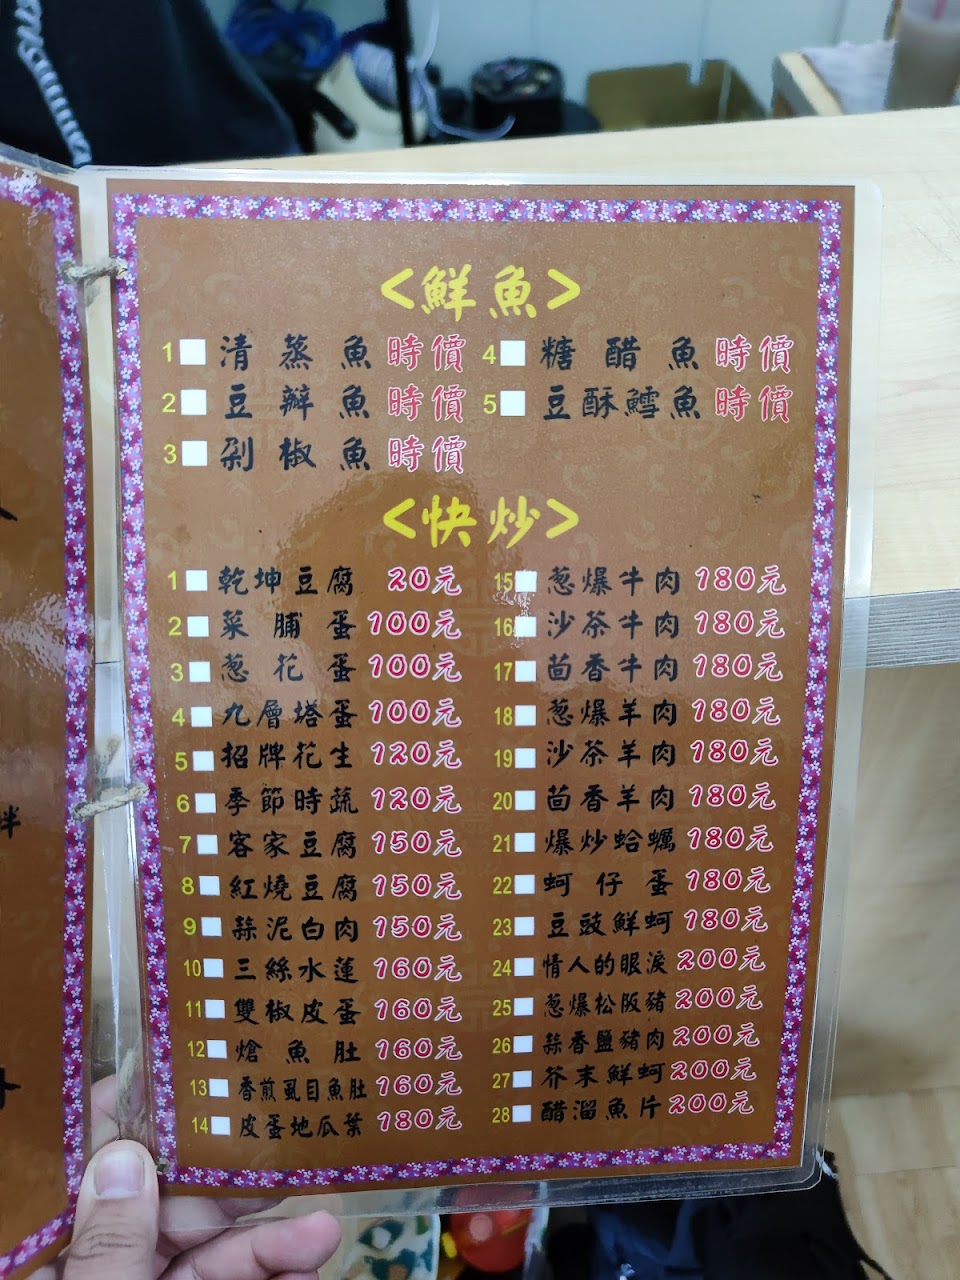 <鮮魚>
1 清蒸魚 時價
2 豆瓣魚 時價
3 剁椒魚 時價
4 糖醋魚 時價
5 豆酥鱈魚 時價
<快炒>
1 乾坤豆腐 20元
2 菜脯蛋 100元
3 蔥花蛋 100元
4 九層塔蛋 100元
5 招牌花生 120元
6 季節時蔬 120元
7 客家豆腐 150元
8 紅燒豆腐 150元
9 蒜泥白肉 150元
10 三絲水蓮 160元
11 雙椒皮蛋 160元
12 熗魚肚 160元
13 香煎虱目魚肚 160元
14 皮蛋地瓜葉 180元
15 蔥爆牛肉 180元
16 沙茶牛肉 180元
17 茴香牛肉 180元
18 蔥爆羊肉 180元
19 沙茶羊肉 180元
20 茴香羊肉 180元
21 爆炒蛤蠣 180元
22 蚵仔蛋 180元
23 豆豉鮮蚵 180元
24 情人的眼淚 200元
25 蔥爆松阪豬 200元
26 蒜香鹽豬肉 200元
27 芥末鮮蚵 200元
28 醋溜魚片 200元